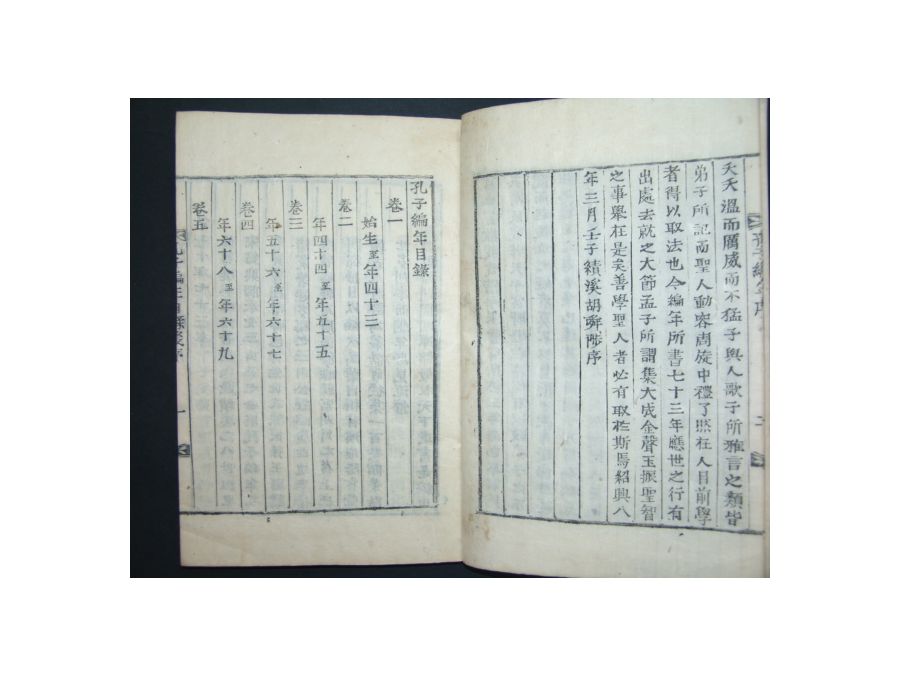 夭夭溫而厲威而不猛子與人歌子所雅言之類皆
弟子所記而聖人動容周旋中禮了然在人目前學
者得以取法也今編年所書七十三年應世之行有
出處去就之大節孟子所謂集大成金聲玉振聖智
之事舉在是矣善學聖人者必有取於斯焉紹興八
年三月壬子績溪胡舜陟序
孔子編年目錄
卷一
始生至年四十三
卷二
年四十四至年五十五
卷三
年五十六至年六十七
卷四
年六十八至年六十九
卷五